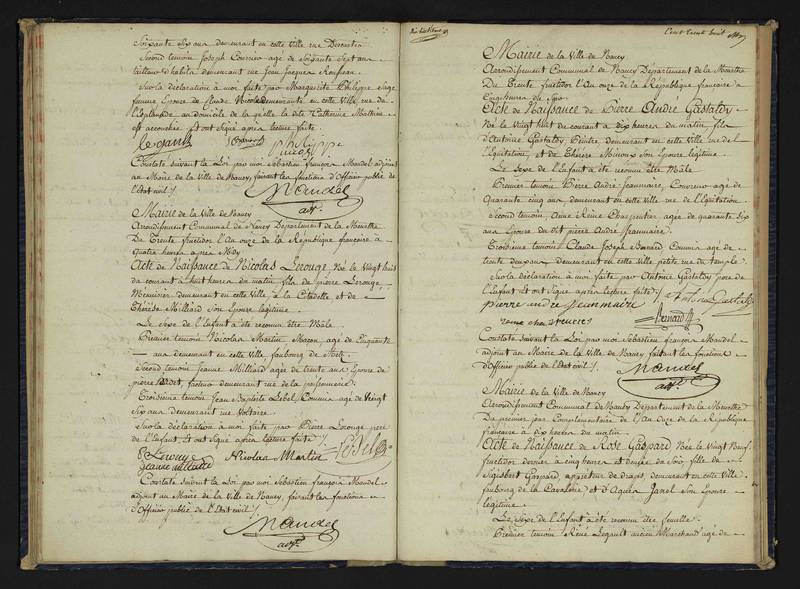 Soixante Six ans demeurant en cette Ville rue Descartes
Second temoin Joseph Courrier agé de Soixante Sept ans
tailleur d'habits demeurant rue Jean Jacques Rousseau
Sur la déclaration à moi faite par Marguerite Philippe Sage
femme Epouse de Claude Nicolas demeurante en cette Ville rue de
l'Esplanade au domicile de la quelle la dite Catherine Mathieu
est accouchée Et ont Signé après lecture faite
Constaté suivant la Loi par moi Sébastien françois Mandel adjoint
au Maire de la Ville de Nancy, faisant les fonctions d'Officier public de
l'Etat civil
Mandel
adjt.
Mairie de la Ville de Nancy
Arrondissement Communal de Nancy Département de la Meurthe
Du Trente fructidor l'An onze de la République française à
quatre heures après Midy
Acte de Naissance de Nicolas Lerouge, Né le Vingt huit
du courant à huit heures du matin fils de pierre Lerouge
Menuisier demeurant en cette Ville à la Citadelle et de
Thérèse Milliard Son Epouse légitime
Le Sexe de l'Enfant à été reconnu être Mâle
Premier temoin Nicolas Martin Maçon agé de Cinquante
ans demeurant en cette Ville faubourg de Metz
Second temoin Jeanne Milliard agée de trente ans Epouse de
pierre facteur demeurant rue de la poissonnerie
Troisieme temoin Jean Baptiste Lebel Commis agé de Vingt
Six ans demeurant rue Voltaire
Sur la déclaration à moi faite par Pierre Lerouge pere
de l'Enfant, Et ont signé après lecture faite
P Lerouge Nicolas Martin Lebel
jeanne milliard
Constaté suivant la Loi par moi Sébastien françois Mandel
adjoint au Maire de la Ville de Nancy, faisant les fonctions
d'Officier public de l'Etat civil
Mandel
adjt.
Cent trente huit
Mairie de la Ville de Nancy
Arrondissement Communal de Nancy Département de la Meurthe
Du Trente fructidor l'An onze de la République française à
Cinq heures du Soir
Acte de Naissance de Pierre André Gastaldy
Né le Vingt huit du courant à dix heures du matin fils
d'Antoine Gastaldy Peintre demeurant en cette Ville rue de
l'Equitation, et de Thérèse Son Epouse légitime.
Le Sexe de l'Enfant à été reconnu être Mâle
Premier temoin Pierre André Jeanmaire, agé de
Quarante cinq ans, demeurant en cette Ville rue de l'Equitation
Second temoin, Anne Reine Charpentier agée de quarante Six
ans Epouse du dit pierre André Jeanmaire.
Troisieme temoin Claude Joseph Bernard Commis agé de
trente deux ans demeurant en cette Ville petite rue du temple
Sur la déclaration à moi faite par Antoine Gastaldy pere de
l'Enfant Et ont Signé après lecture faite
pierre andré jeanmaire
Bernard
Constaté suivant la Loi par moi Sébastien françois Mandel
adjoint au Maire de la Ville de Nancy faisant les fonctions
d'Officier public de l'Etat civil
Mandel
adjt.
Mairie de la Ville de Nancy
Arrondissement Communal de Nancy Département de la Meurthe
Du premier jour Complémentaire de l'An onze de la République
française à dix heures du matin
Acte de Naissance de Rose Gaspard Née le Vingt Neuf
fructidor dernier à cinq heures et demie du Soir, fille de
Sigisbert Gaspard, apprêteur de draps, demeurant en cette Ville
faubourg de la Pareheric et d'Agnès Janel Son Epouse
légitime
Le Sexe de l'Enfant à été reconnu être femelle
Premier temoin René Legault ancien Marchand agé de